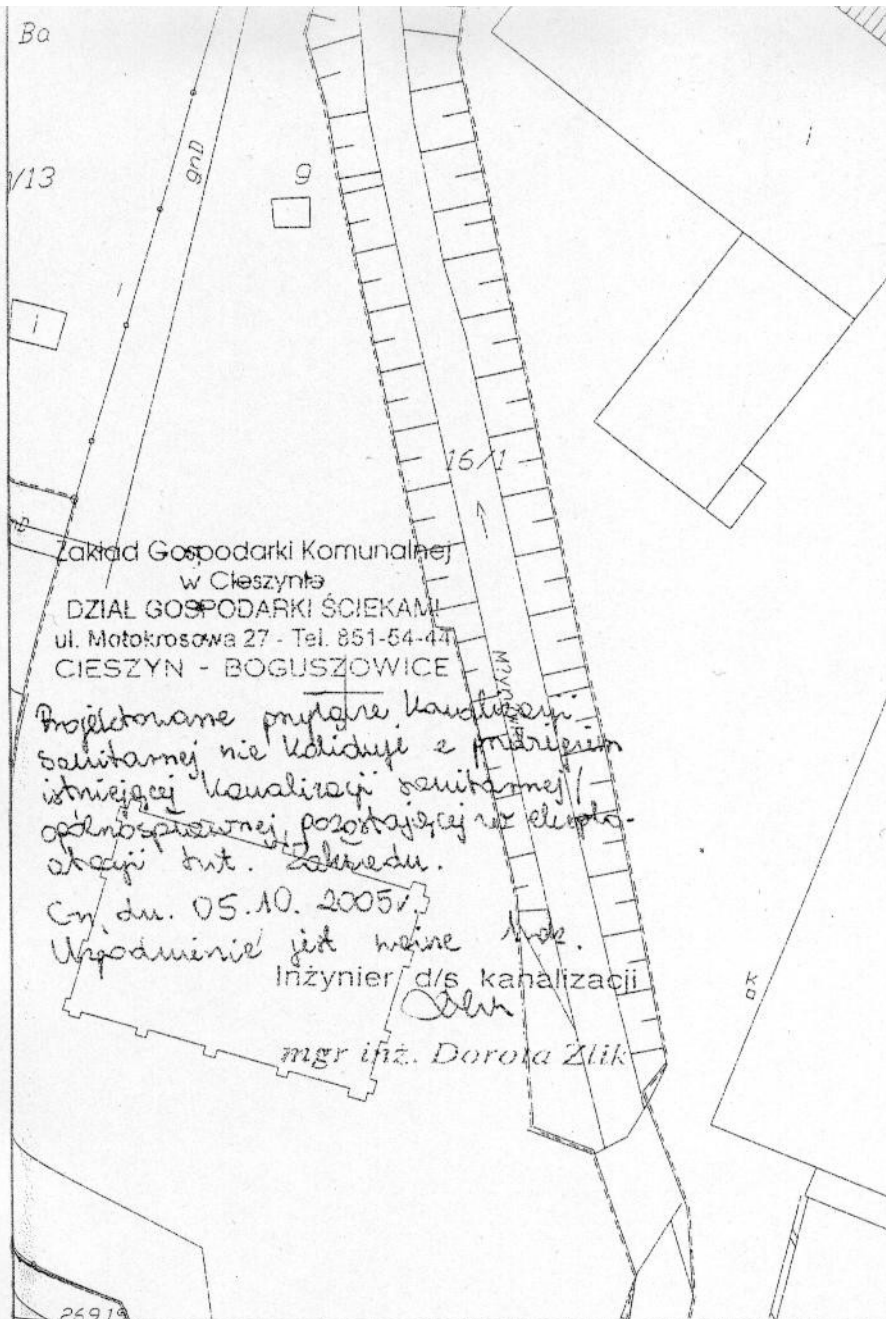 Ba
gnD
1/13
g
i
i
16/1
Zakład Gospodarki Komunalnej
w Cieszynie
DZIAŁ GOSPODARKI ŚCIEKAMI
ul. Motokrosowa 27 - Tel. 851-54-44
CIESZYN - BOGUSZOWICE
Młynówka
Projektowane przyłącze kanalizacji
sanitarnej nie koliduje z
istniejącej kanalizacji sanitarnej/
ogólnospławnej, pozostającej w eksplo-
atacji tut. Zakładu.
Cn, dn. 05.10.2005r.
Uzgodnienie jest ważne 1 rok.
Inżynier d/s kanalizacji
mgr inż. Dorota Zlik
ko
26919